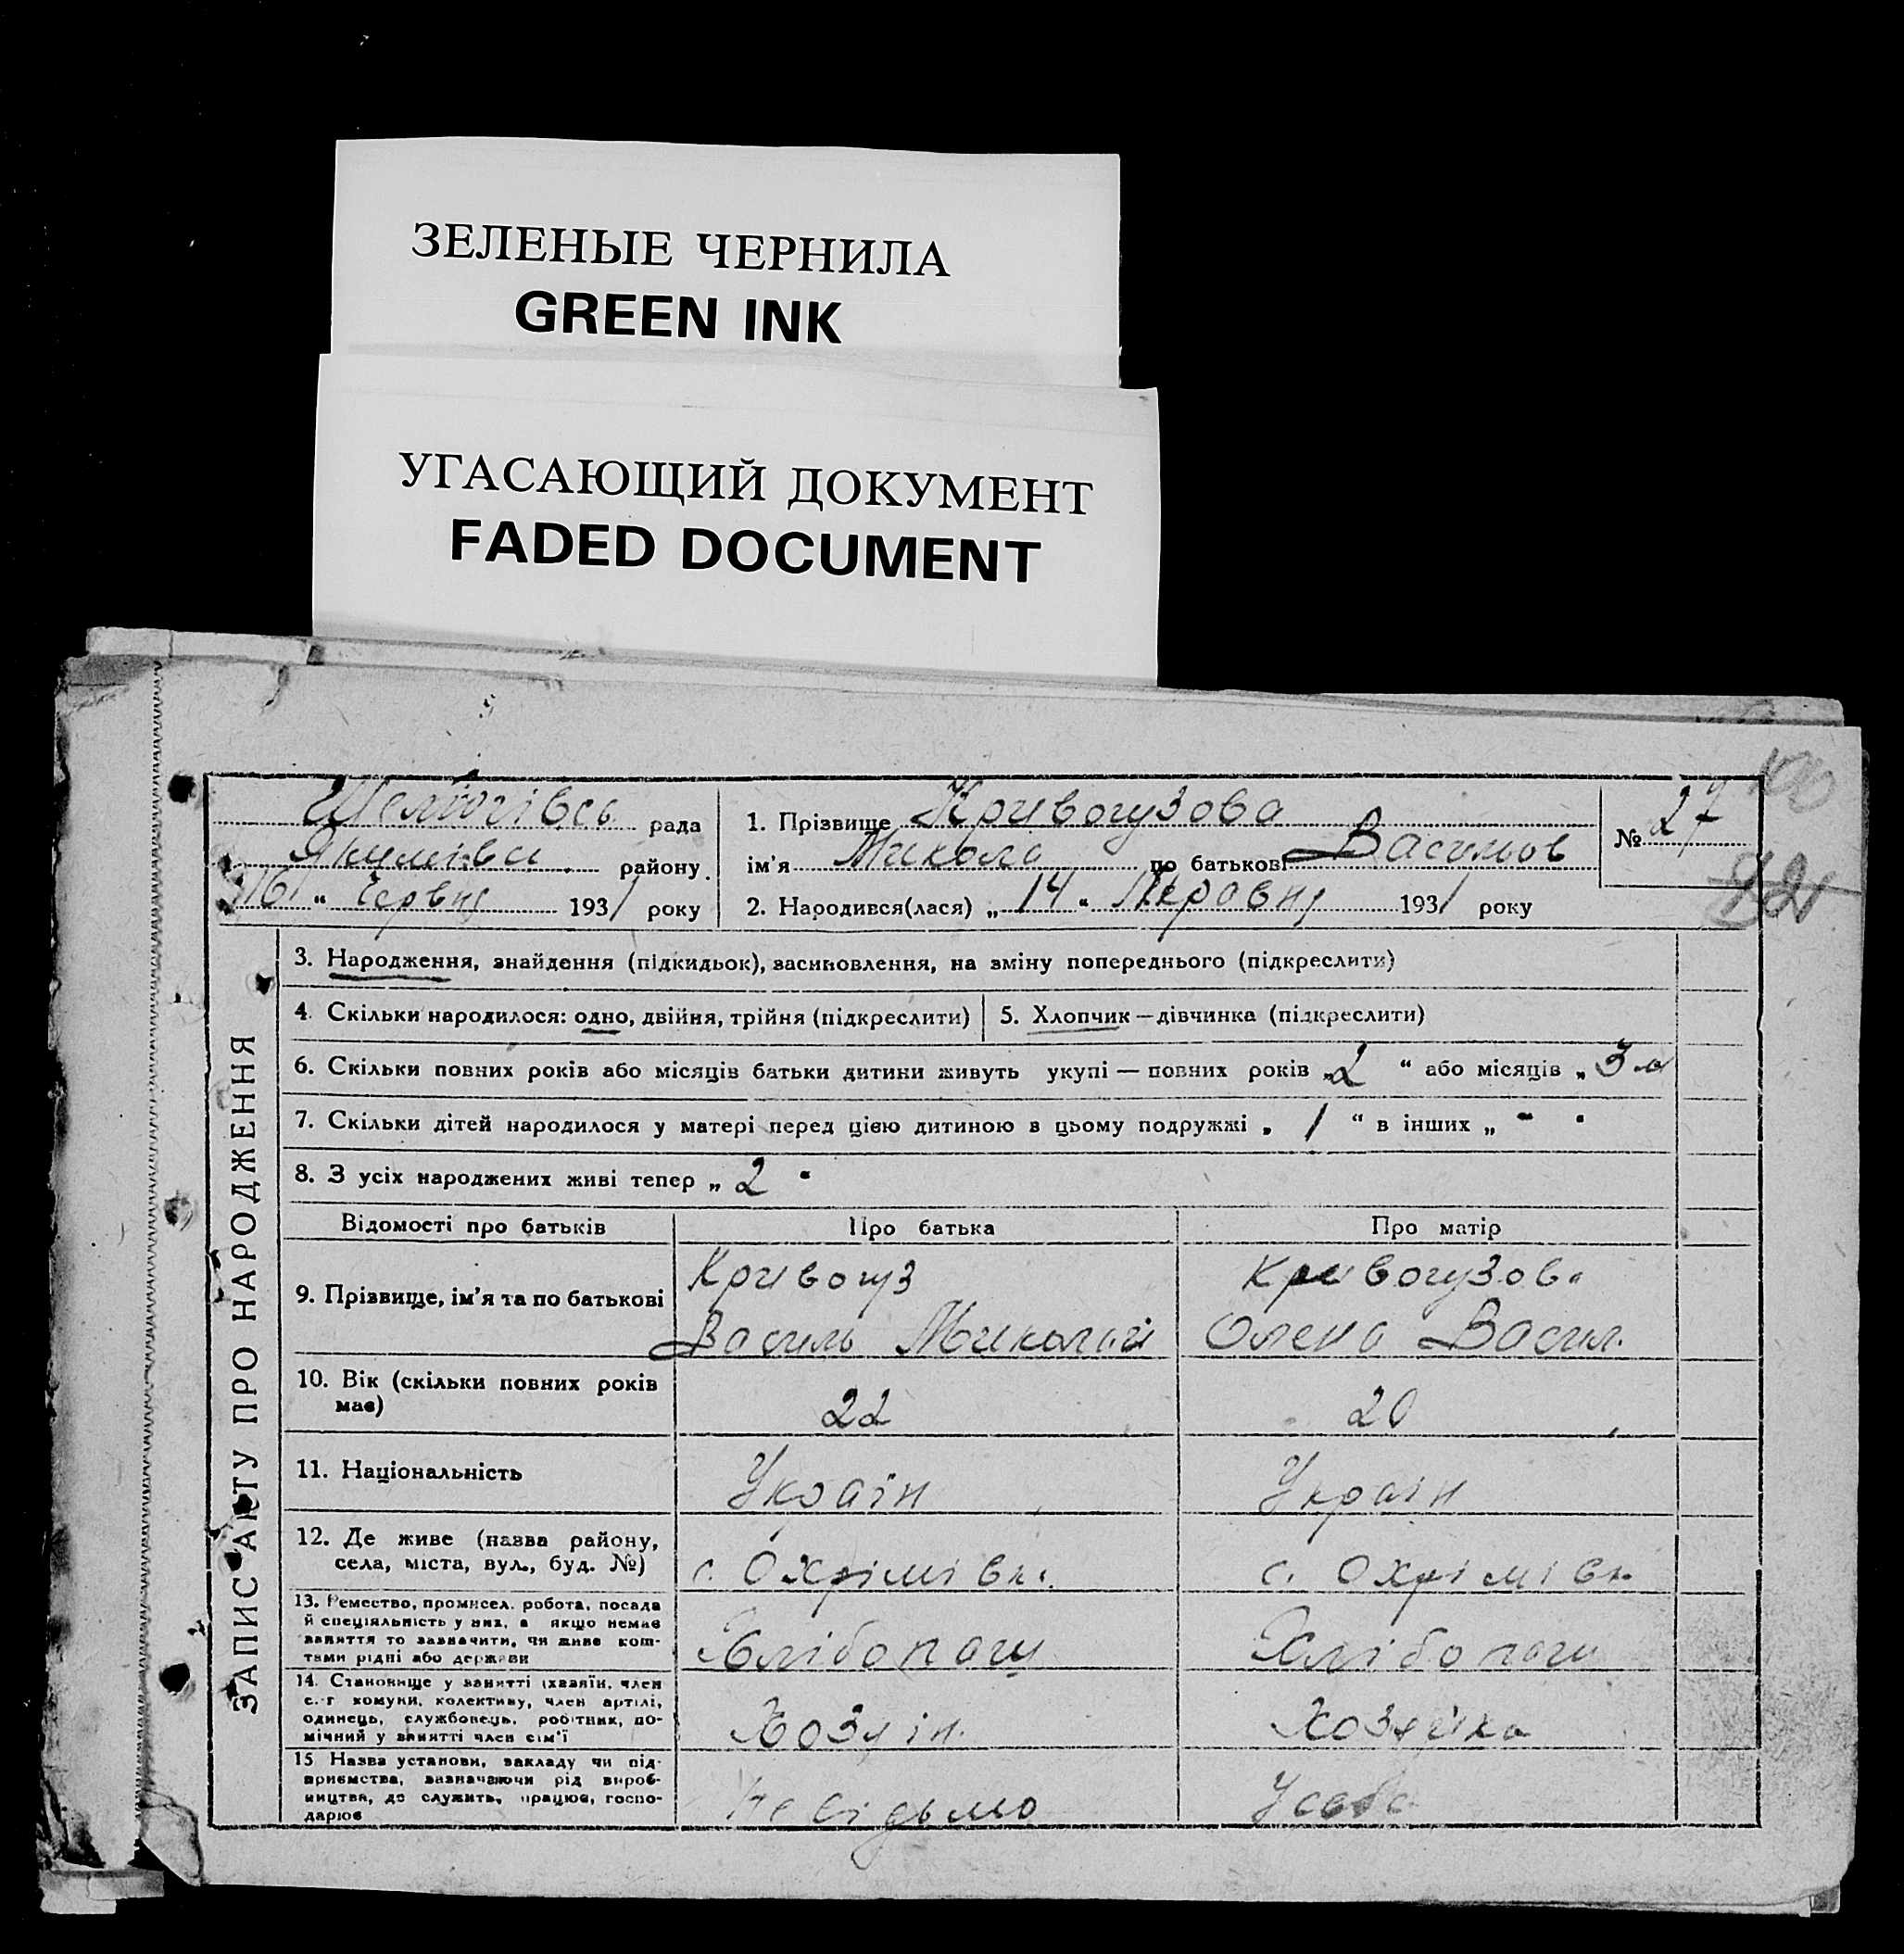 ЗЕЛЕНЫЕ ЧЕРНИЛА
GREEN INK
УГАСАЮЩИЙ ДОКУМЕНТ
FADED DOCUMENT
рада
району
"16" Червня 1931 року
1. Прізвище Кривогузова
ім'я Микола по батькові Васильов
2. Народився(лася) „14" 1931 року
№ 27
ЗАПИС АКТУ ПРО НАРОДЖЕННЯ
3. Народження, знайдення (підкидьок), засиновлення, на зміну попереднього (підкреслити)
4. Скільки народилося: одно, двійня, трійня (підкреслити) 5. Хлопчик—дівчинка (підкреслити)
6. Скільки повних років або місяців батьки дитини живуть укупі — повних років „2" або місяців „3
7. Скільки дітей народилося у матері перед цією дитиною в цьому подружжі „1" в інших „-"
8. З усіх народжених живі тепер „2"
Відомості про батьків Про батька Про матір
9. Прізвище, ім'я та по батькові
Кривогуз
Василь Миколай
Кривогузова
Олена Васил.
10. Вік (скільки повних років
має)
22 20
11. Національність Україн Україн
12. Де живе (назва району,
села, міста, вул., буд. №)
с. Охрімівк. с. Охрімівк
13. Ремество, промисел, робота, посада
й спеціяльність у них, а якщо немає
заняття то зазначити, чи живе кош-
тами рідні або держави
Хлібопащ Хлібопащ
14. Становище у занятті (хазяїн, член
с.-г комуни, колективу, член артілі,
одинець, службовець, робітник, по-
мічний у занятті член сім'ї
Хозяін. Хозяйка
15 Назва установи, закладу чи під-
приємства, зазначаючи рід вироб-
ництва, де служить, працює, госпо-
дарює